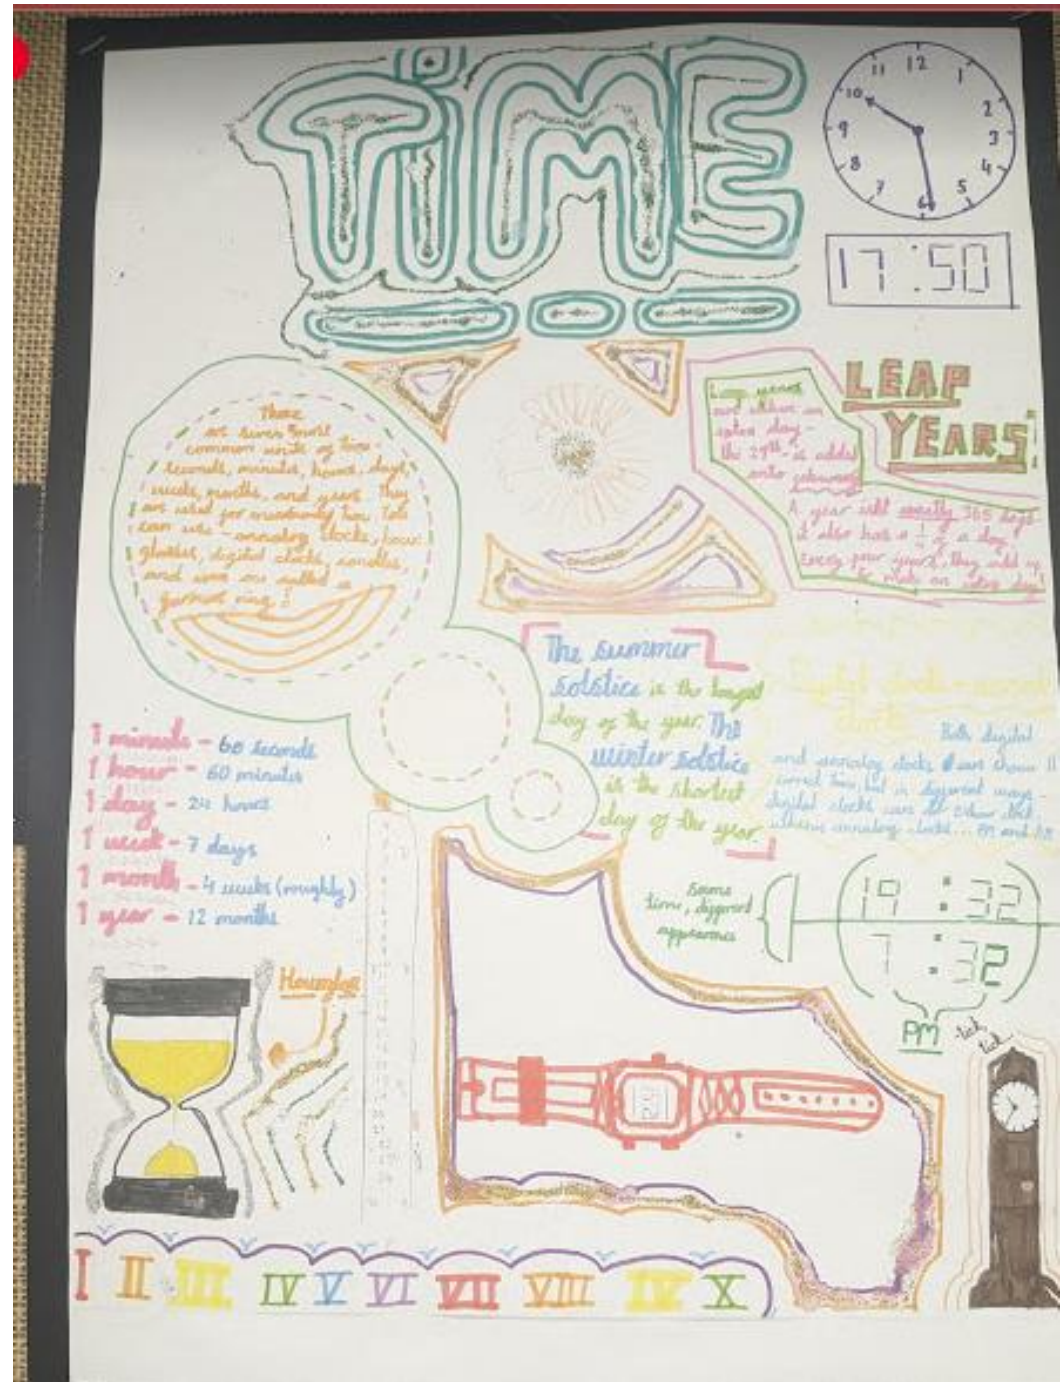 TiME
11 12 1
10 2
9 3
8 4
7 6 5
17:50
LEAP
YEARS
Leap years
are when an
extra day -
the 29th - is added
onto
A year isn't exactly 365 days -
it also has a 1/4 of a day.
Every four years, they add up
to make an extra day
There
are seven most
common units of time -
seconds, minutes, hours, days,
weeks, months, and years. They
are used for measuring time. You
can use - annalog clocks, hour
glasses, digital clocks, candles,
and even one called a
ring!
The summer
solstice is the longest
day of the year. The
winter solstice
is the shortest
day of the year.
Digital clocks - annalog
clocks
Both digital
and annalog clocks can show
time, but in different ways -
digital clocks use the 24 hour clock
annalog clocks... AM and PM
1 minute - 60 seconds
1 hour - 60 minutes
1 day - 24 hours
1 week - 7 days
1 month - 4 weeks (roughly)
1 year - 12 months
Same
time, different
appearance
19:32
7:32
PM
tick
tick
Hourglass
I II III IV V VI VII VIII IV X